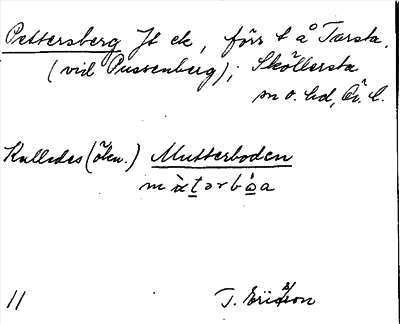 Pettersberg Jt ek, förr t å Tarsta.
(vid Pussenberg); Sköllersta
sn o. hd, Ör. l.
Kallades (ökn.) Mutterboden
m
11 T. Ericsson